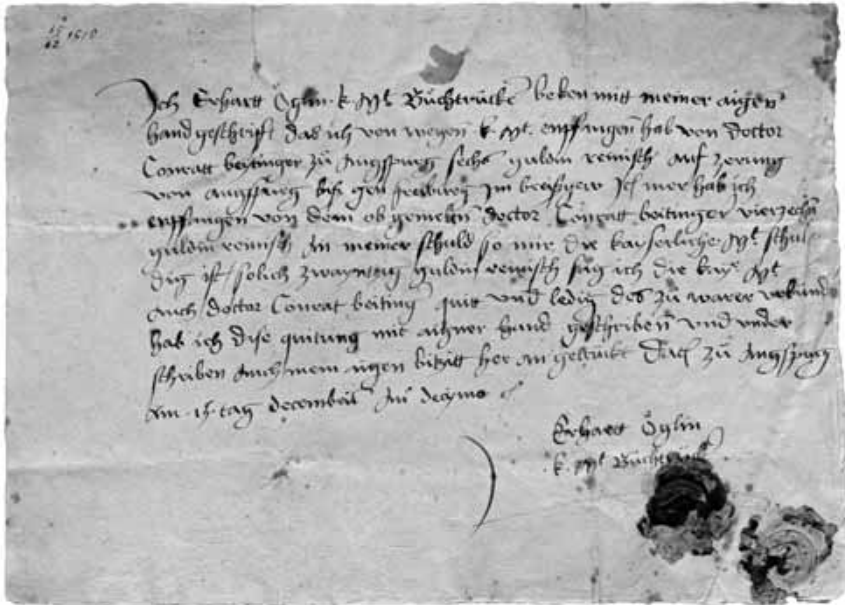 15/12 1510
Ich Erhartt Öglin k. Mt. Büchtrucke beken mitt meiner aigen
handgeschrift das ich von wegen k. Mt. enpfangen hab von doctor
Conratt beitinger zů Augspurg sechs guldin reinisch auf zerung
von augspurg bis gen freiburg im breisgew Jtem mer hab ich
enpfangen von dem ob gemelten doctor Conratt beitinger vierzechen
guldin reinisch an meiner schuld so mir die kaiserliche Mt. schul
dig ist solich zwayntzig guldin reinisch sag ich die kay. Mt.
auch doctor Conrat beiting quit und ledig des zů warer urkund
hab ich dise quitung mit aigner hand geschriben und under
schriben auch mein aigen bitzitt her an getruckt Dat zů Augspurg
am 15 tag decembris An decymo
Erhartt Öglin
k. Mt. Büchtruck